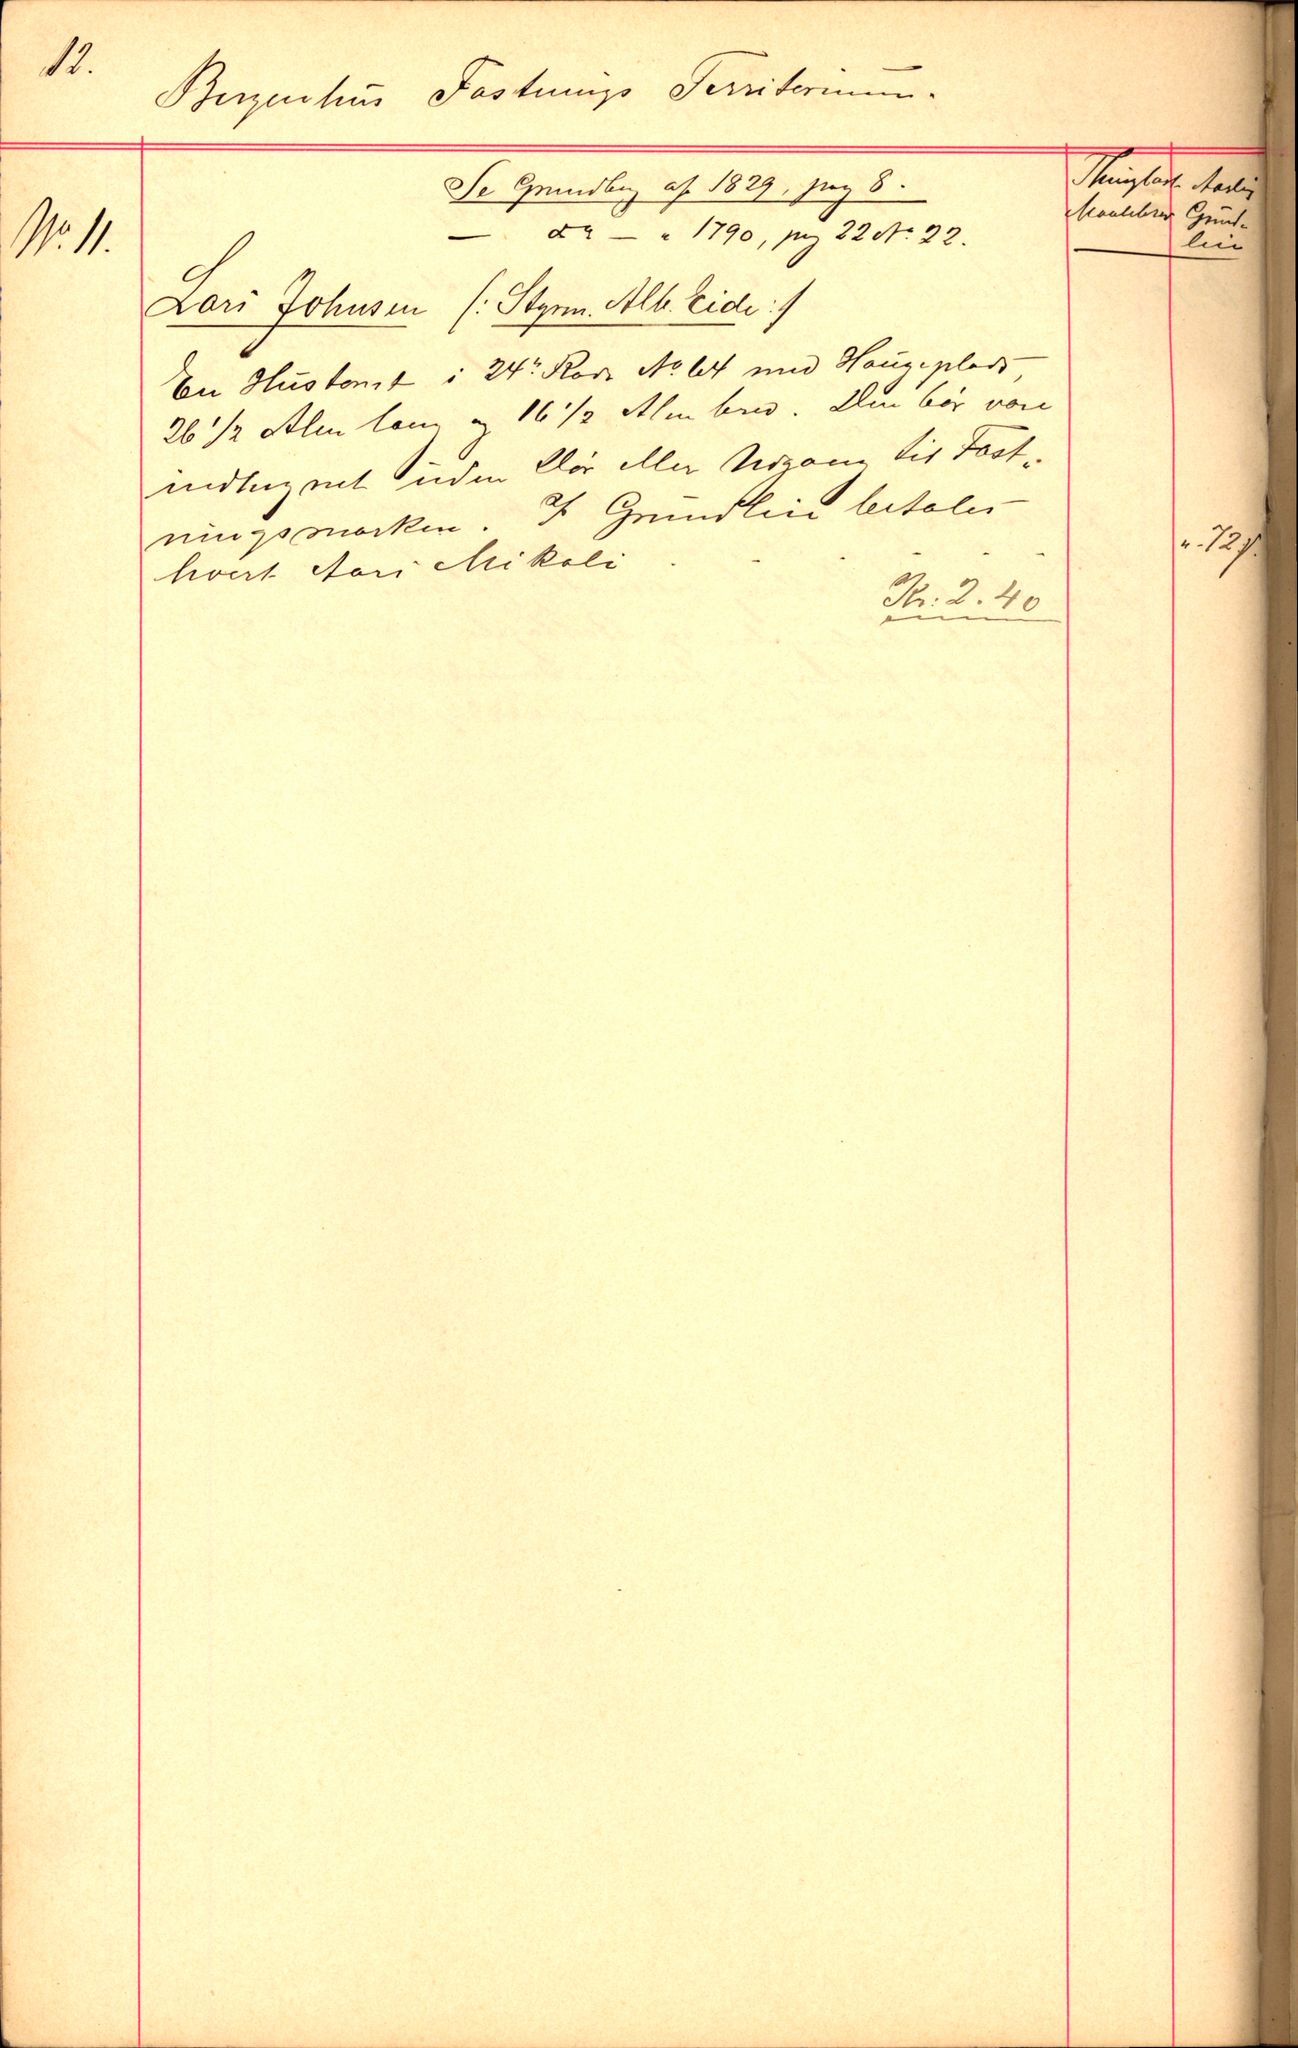 12.
Bergenhus Fæstnings Territorium.
Se Grundbog af 1829, pag 8.
— do — " 1790, pag 22 No 22.
Thinglæst Aarlig
Grund-
leie
No. 11.
Lars Johnsen (: Styrm. Alb. Eide :)
En Hustomt i 24de Rode No 64 med Haugeplads,
26 1/2 Alen lang og 16 1/2 Alen bred. Den bör være
indhegnet uden Dör eller Udgang til Fæst-
ningsmarken. I Grundleie betales
hvert Aars Mikali . - - -
" 72 ſ.
Kr: 2.40